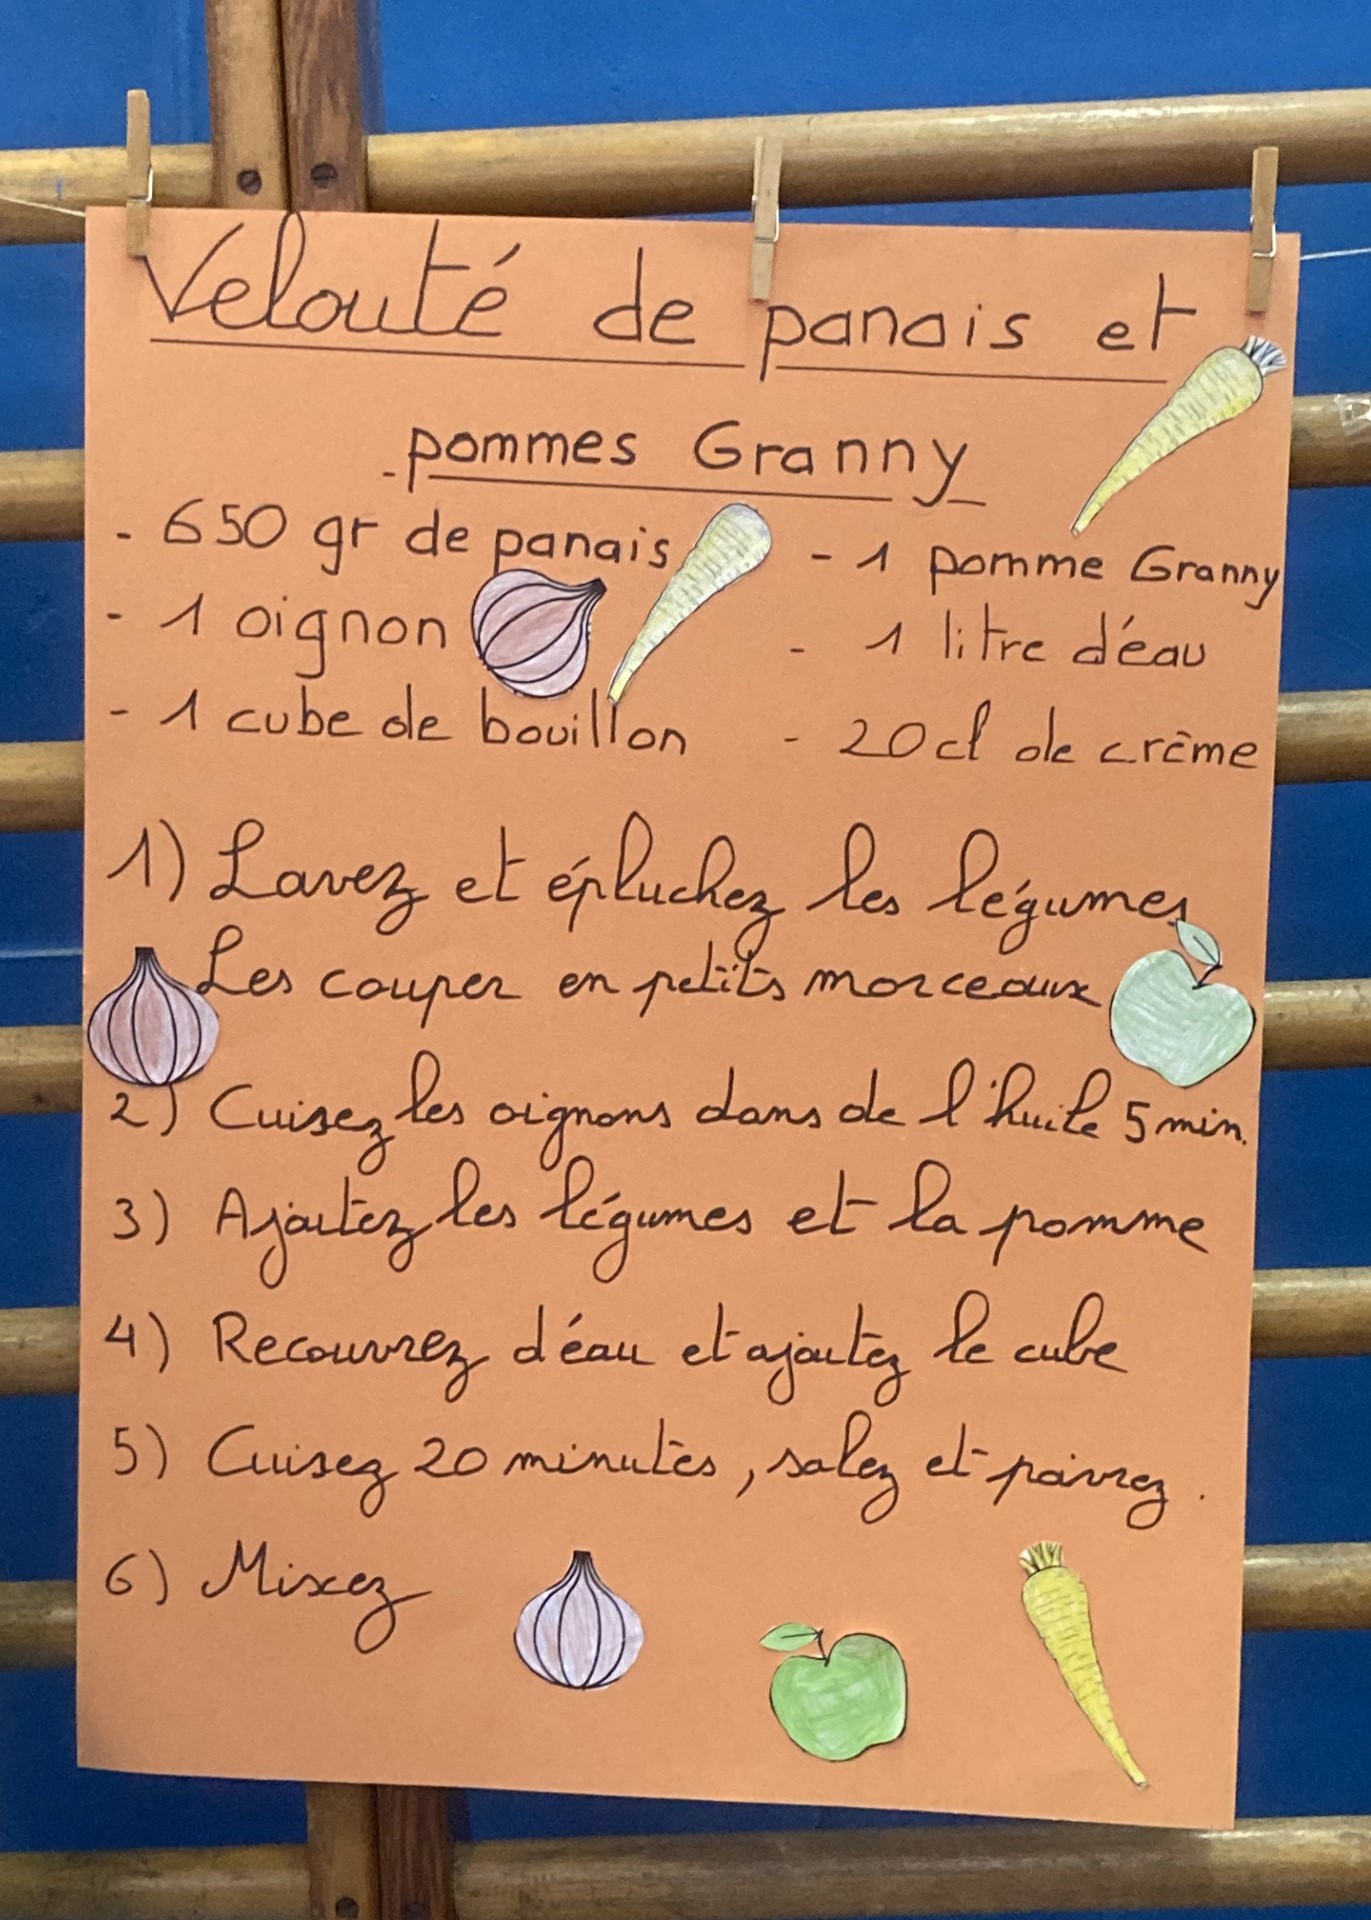 Velouté de panais et
- pommes Granny
- 650 gr de panais
- 1 oignon
- 1 cube de bouillon
- 1 pomme Granny
- 1 litre d'éau
- 20cl de crème
1) Lavez et épluchez les légumes
Les couper en petits morceaux
2) Cuisez les oignons dans de l'huile 5 min.
3) Ajoutez les légumes et la pomme
4) Recouvrez d'éau et ajoutez le cube
5) Cuisez 20 minutes, salez et poivrez.
6) Mixez